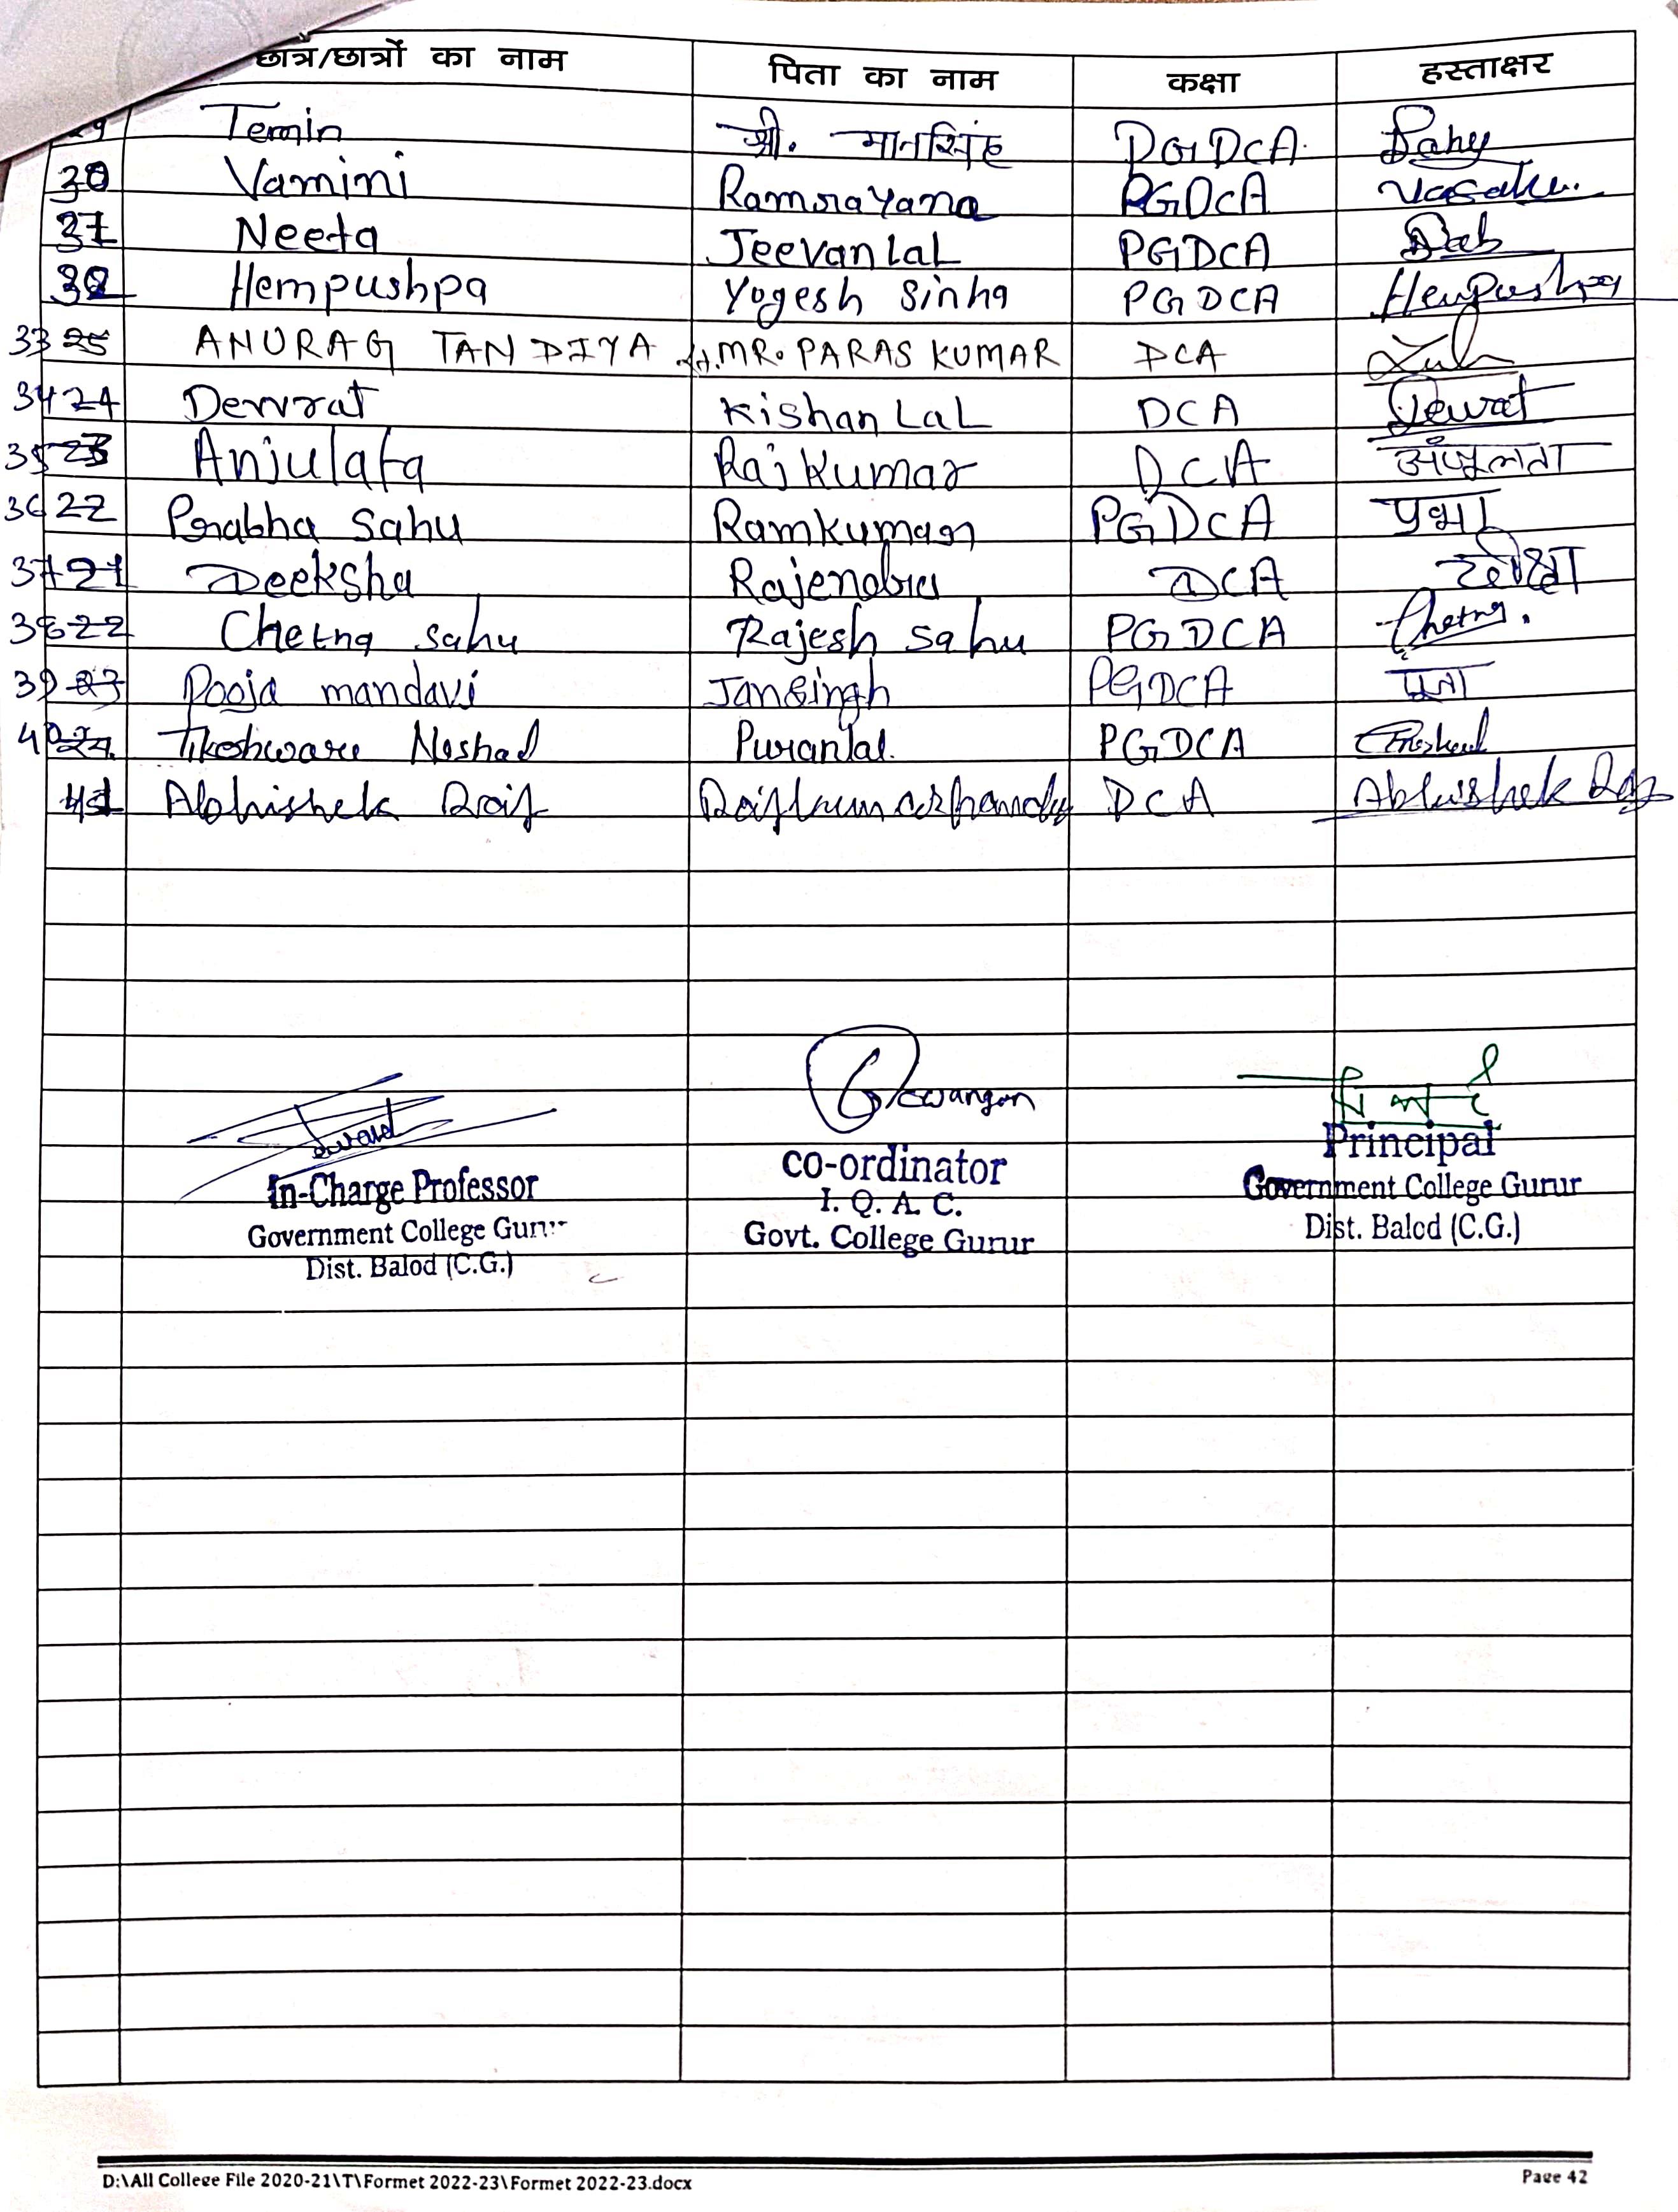 छात्र/छात्रों का नाम पिता का नाम कक्षा हस्ताक्षर
29 Temin श्री. मानसिंह PGDCA. Sahu
30 Yamini Ramnarayana PGDCA
31 Neeta Jeevanlal PGDCA
32 Hempushpa Yogesh Sinha PGDCA Hempushpa
33 25 ANURAG TANDIYA MR. PARAS KUMAR DCA
34 24 Dewrat Kishan Lal DCA Dewrat
35 23 Anjulata Rajkumar DCA अंजूलता
36 22 Prabha Sahu Ramkumar PGDCA प्रभा
37 21 Deeksha Rajendra DCA दीक्षा
38 22 Chetna sahu Rajesh sahu PGDCA Chetna.
39 23 Pooja mandavi Jansingh PGDCA पूजा
40 24. Tikeshwari Noshad Puranlal. PGDCA
41 Abhishek Raj DCA Abhishek Raj
Dewangan
In-Charge Professor co-ordinator Principal
Government College Gurur I. Q. A. C. Government College Gurur
Dist. Balod (C.G.) Govt. College Gurur Dist. Balod (C.G.)
D:\All College File 2020-21\T\Formet 2022-23\Formet 2022-23.docx Page 42